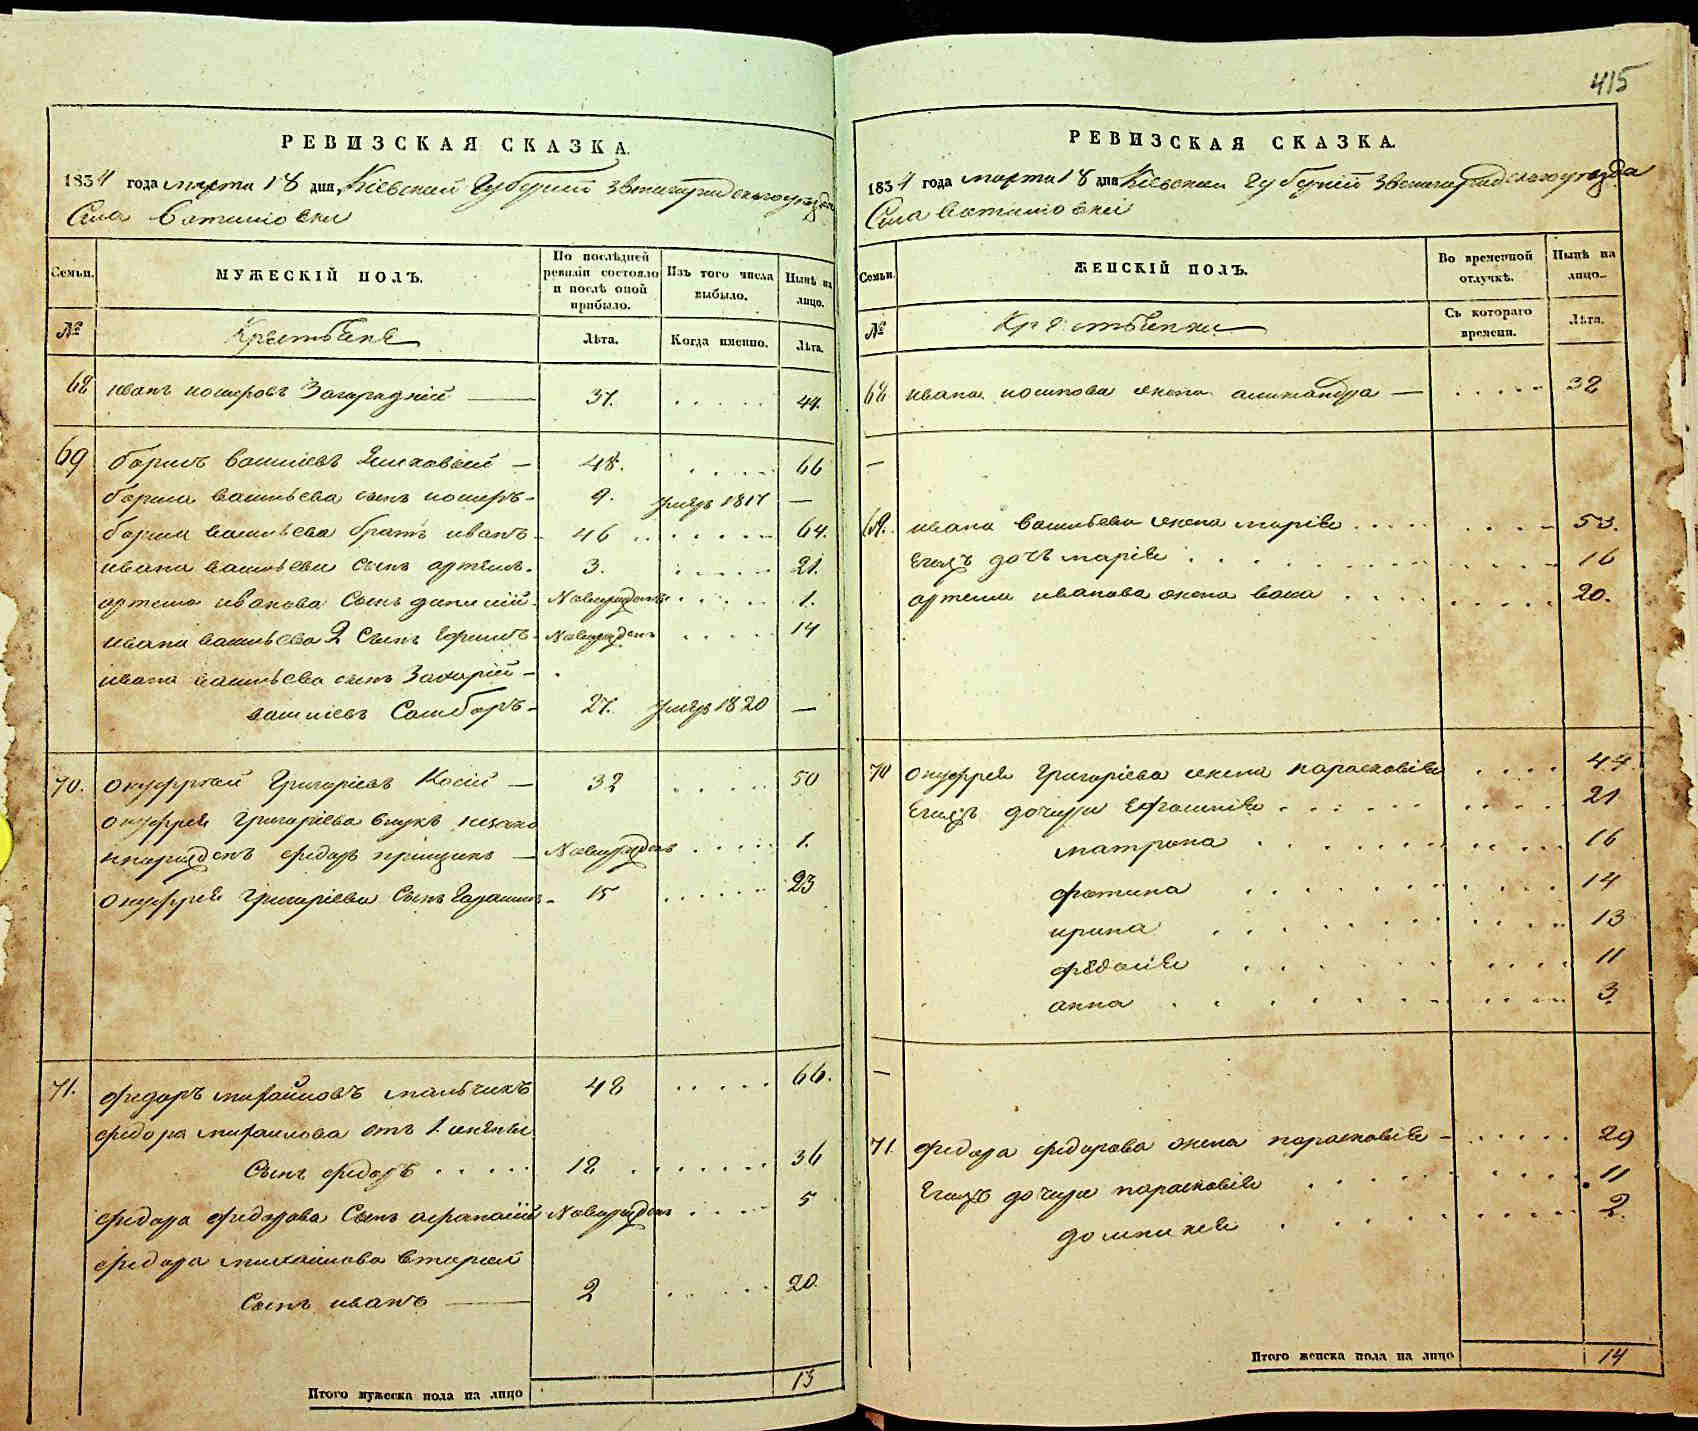 415
РЕВИЗСКАЯ СКАЗКА.
1834 года марта 18 дня, Кіевской Губерніи Звенигородскаго уезда
Села
МУЖЕСКІЙ ПОЛЪ.
Семьи.
По послѣдней ревизіи состояло и послѣ оной прибыло.
Изъ того числа выбыло.
Нынѣ на лицо.
№
Крестьяне
Лѣта.
Когда именно.
Лѣта.
68 иванъ Загародній — 37. . . . . . 44.
69 борисъ — 48. . . . . . 66
бориса васильева сынъ - 9. умеръ 1817 —
бориса васильева братъ иванъ - 46 . . . . . . 64.
ивана васильева сынъ артемъ - 3. . . . . . 21.
артема иванова сынъ - Новорожденъ . . . . 1.
ивана васильева 2 сынъ - Новорожденъ . . . . 14
ивана васильева сынъ Захарій -
- 27. умеръ 1820 —
70. онуфрий Григоріевъ Косій — 32 . . . . . 50
онуфрія Григоріева внукъ
федоръ — Новорожденъ . . . . . 1.
онуфрія Григоріева сынъ - 15 . . . . . . 23
71. федоръ михайловъ мальчикъ 48 . . . . . 66.
федора михайлова отъ 1 жены
сынъ федоръ . . . . . 18 . . . . . . . 36
федора федорова сынъ афанасій Новорожденъ . . . . 5
федора михайлова второй
сынъ иванъ — 2 . . . . . 20.
Итого мужеска пола на лицо 13
РЕВИЗСКАЯ СКАЗКА.
1834 года марта 18 дня Кіевской Губерніи Звенигородскаго уезда
Села
Семьи.
ЖЕНСКІЙ ПОЛЪ.
Во временной отлучкѣ.
Нынѣ на лицо.
№
Крестьянки
Съ котораго времени.
Лѣта.
68 ивана жена александра — . . . . . 32
—
69. ивана васильева жена марія . . . . . . . . 53.
Егожъ дочь марія . . . . . . . . . . . . 16
артема иванова жена . . . . . . . . . . 20.
70 онуфрія Григоріева жена парасковія . . . . 44.
Егожъ дочери Ефросинія . . . . . . . . . 21
матрона . . . . . . . . . . . 16
фотина . . . . . . . . . . . 14
ирина . . . . . . . . . . . 13
феодосія . . . . . . . . . . 11
анна . . . . . . . . . . . . 3.
—
71. федора федорова жена парасковія - . . . . . . 29
Егожъ дочери парасковія . . . . . . . . . 11
домникія . . . . . . . . . . 2.
Итого женска пола на лицо 14